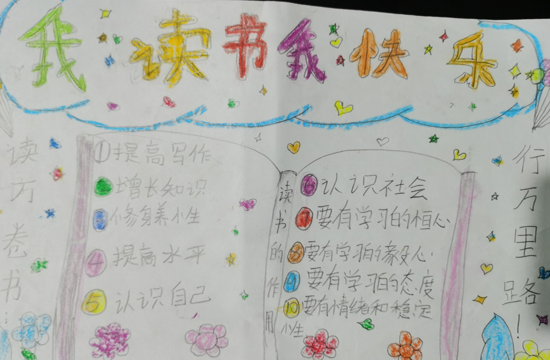 我读书我快乐
读万卷书
①提高写作
2增长知识
3修身养性
4提高水平
5认识自己
读书的作用
6认识社会
7要有学习的恒心
8要有学习的心
9要有学习的态度
10要有情绪和稳定
性
行万里路!